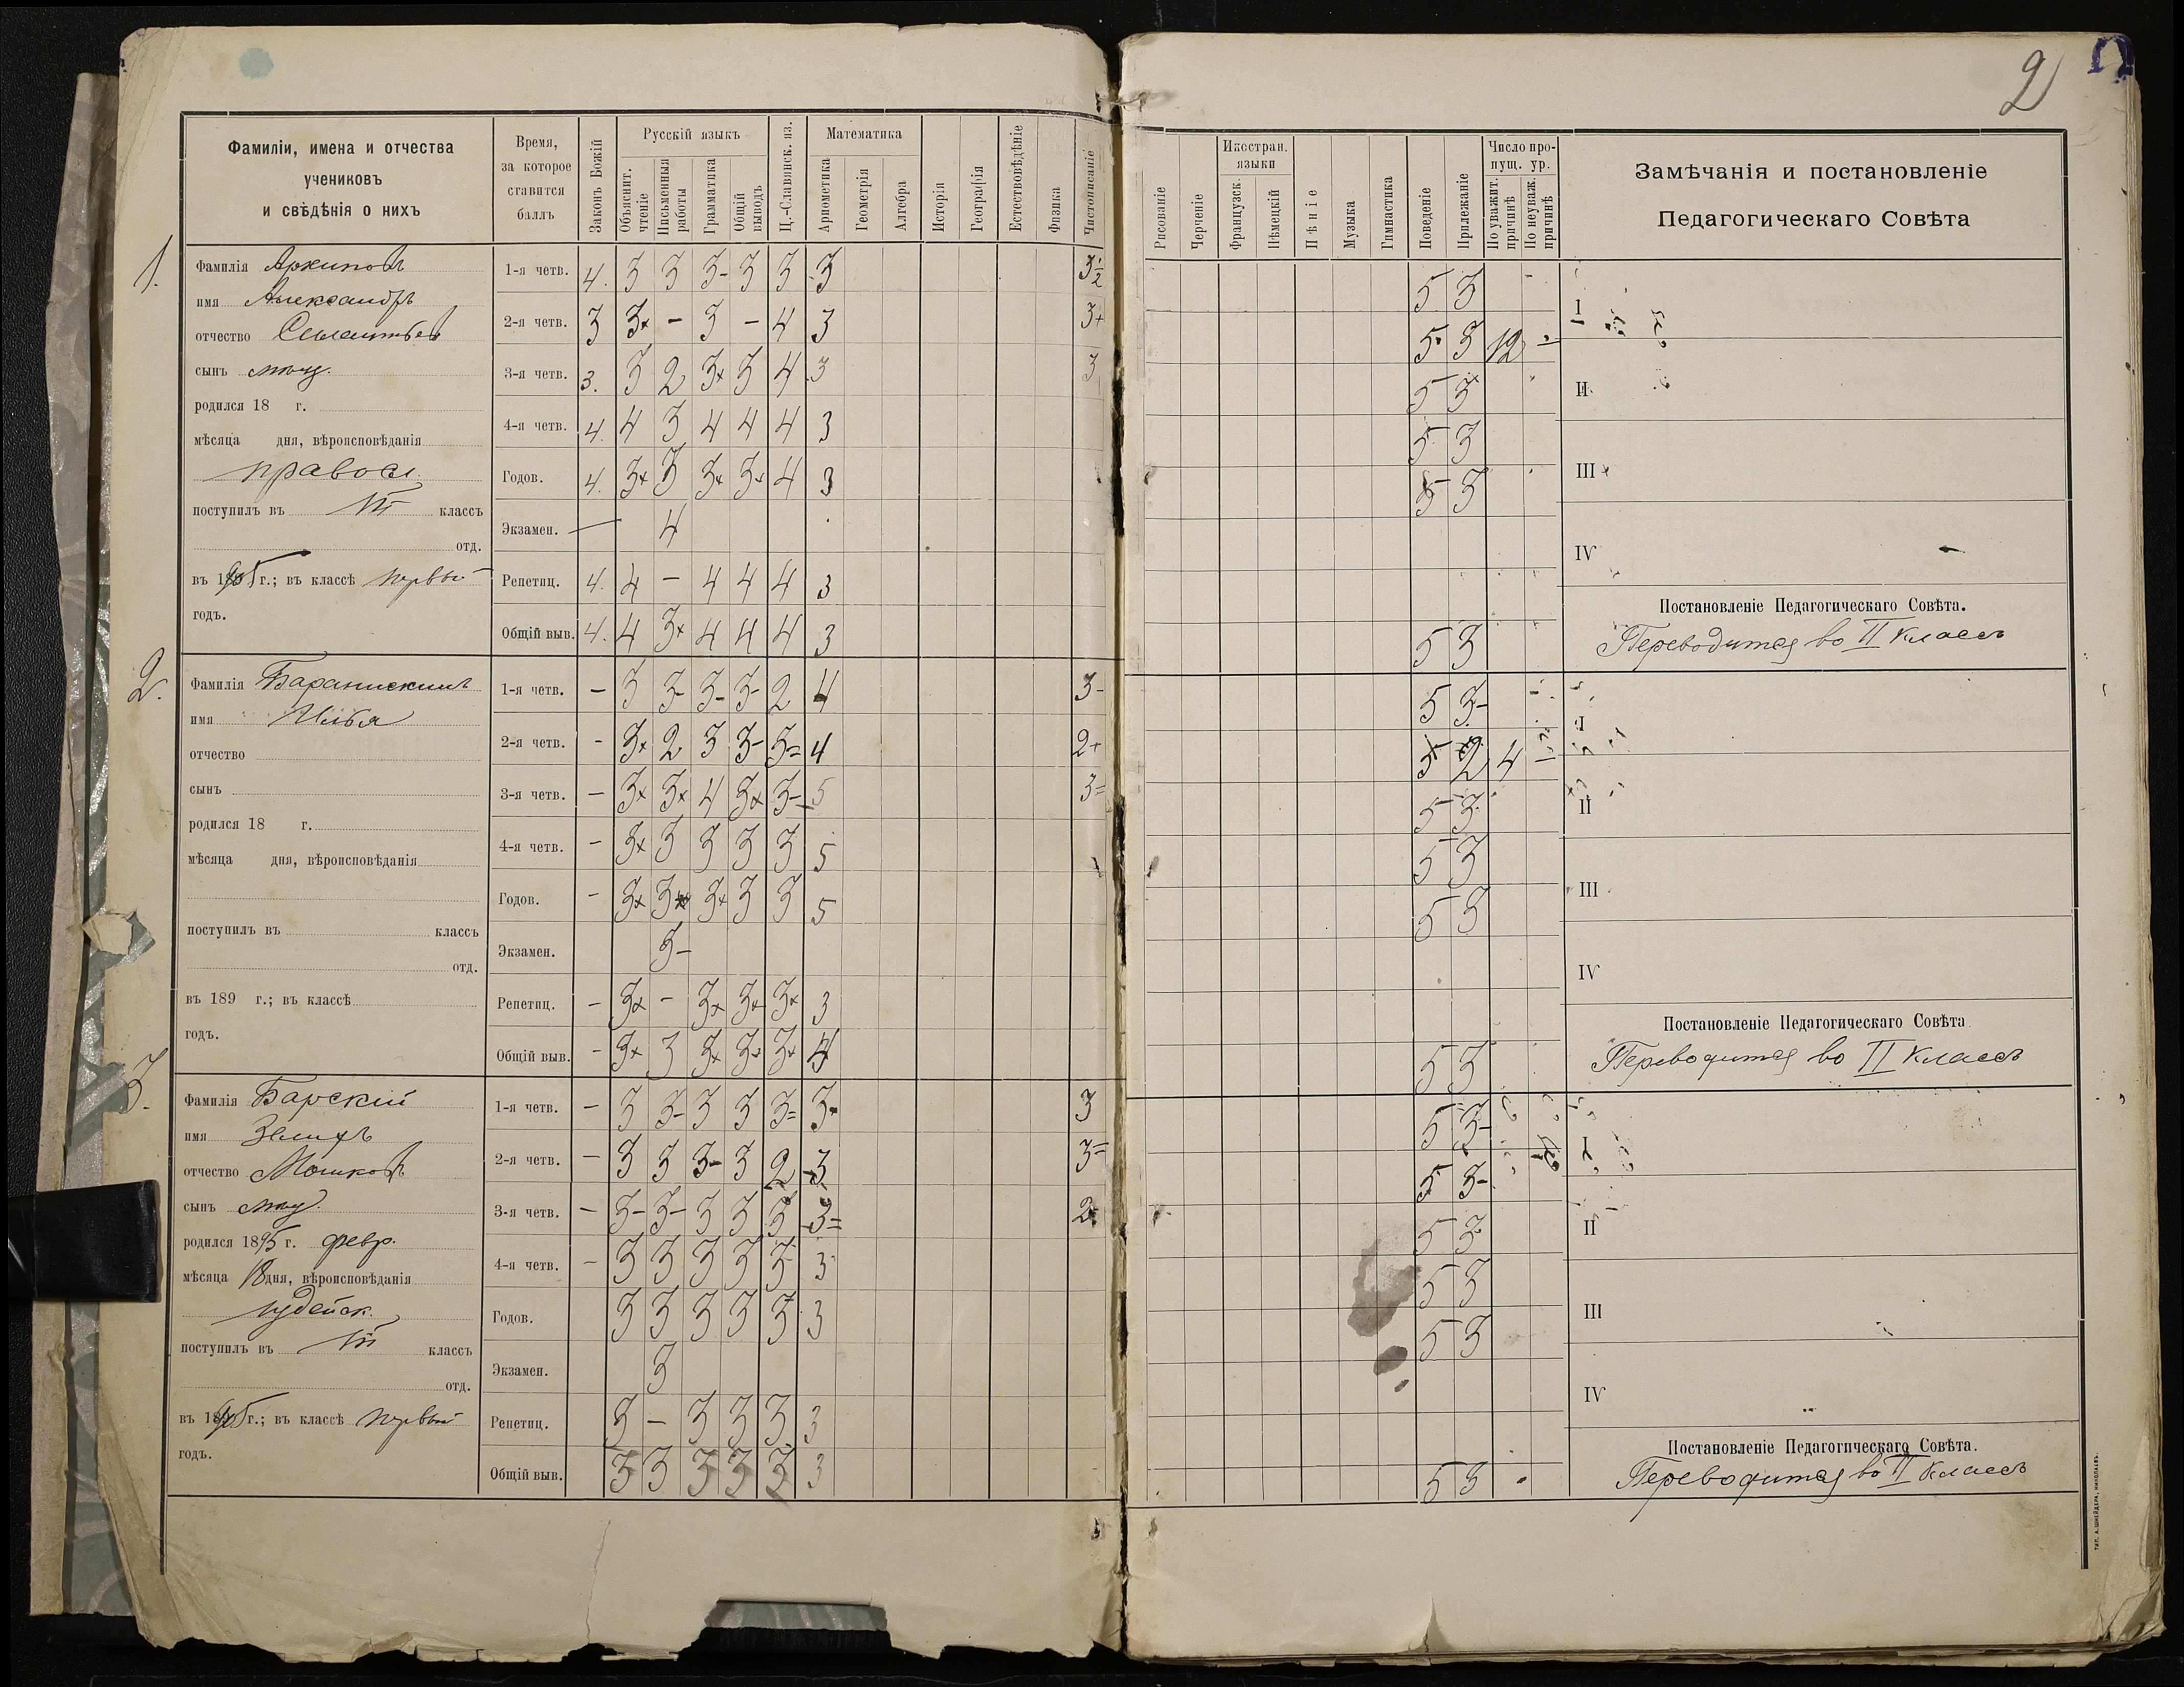 2
Фамиліи, имена и отчества
учениковъ
и свѣдѣнія о нихъ
Время,
за которое
ставится
баллъ
Законъ Божій
Русскій языкъ
Объяснит. чтеніе
Письменныя работы
Грамматика
Общій выводъ
Ц.-Славянск. яз.
Математика
Ариѳметика
Геометрія
Алгебра
Исторія
Географія
Естествовѣдѣніе
Физика
Чистописаніе
Рисованіе
Черченіе
Иностран. языки
Французск.
Нѣмецкій
Пѣніе
Музыка
Гимнастика
Поведеніе
Прилежаніе
Число пропущ. ур.
По уважит. причинѣ
По неуваж. причинѣ
Замѣчанія и постановленіе
Педагогическаго Совѣта
1.
Фамилія Архиповъ
имя Александръ
отчество
сынъ мѣщ.
родился 18 г.
мѣсяца дня, вѣроисповѣданія
правосл.
поступилъ въ классъ
отд.
въ 1905 г.; въ классѣ первый
годъ.
1-я четв. 4. 3 3 3- 3 3 3 3½ 5 3
2-я четв. 3 3+ - 3 - 4 3 3+ 5 3 12 -
3-я четв. 3. 3 2 3+ 3 4 3 3 5 3
4-я четв. 4. 4 3 4 4 4 3 5 3
Годов. 4. 3+ 3 3+ 3+ 4 3 5 3
Экзамен. — 4
Репетиц. 4. 4 - 4 4 4 3
Общій выв. 4. 4 3+ 4 4 4 3 5 3
I
II
III
IV
Постановленіе Педагогическаго Совѣта.
Переводится во II классъ
2.
Фамилія
имя Илья
отчество
сынъ
родился 18 г.
мѣсяца дня, вѣроисповѣданія
поступилъ въ классъ
отд.
въ 189 г.; въ классѣ
годъ.
1-я четв. - 3 3- 3- 3- 2 4 3- 5 3-
2-я четв. - 3+ 2 3 3- 3= 4 2+ 5 2 4 -
3-я четв. - 3+ 3+ 4 3+ 3- 5 3= 5 3
4-я четв. - 3+ 3 3 3 3 5 5 3
Годов. - 3+ 3+ 3+ 3 3 5 5 3
Экзамен. 3-
Репетиц. - 3+ - 3+ 3+ 3+ 3
Общій выв. - 3+ 3 3+ 3+ 3+ 4 5 3
I
II
III
IV
Постановленіе Педагогическаго Совѣта
Переводится во II классъ
3.
Фамилія Барскій
имя Зелихъ
отчество Мошковъ
сынъ мѣщ.
родился 1895 г. февр.
мѣсяца 18 дня, вѣроисповѣданія
іудейск.
поступилъ въ классъ
отд.
въ 1905 г.; въ классѣ первый
годъ.
1-я четв. - 3 3- 3 3 3= 3+ 3 5 3-
2-я четв. - 3 3 3- 3 2 3 3= 5 3-
3-я четв. - 3- 3- 3 3 3 3= 2 5 3
4-я четв. - 3 3 3 3 3 3 5 3
Годов. 3 3 3 3 3 3 5 3
Экзамен. 3
Репетиц. 3 - 3 3 3 3
Общій выв. 3 3 3 3 3 3 5 3
I
II
III
IV
Постановленіе Педагогическаго Совѣта.
Переводится во II классъ
ТИП. А. ШНЕЙДЕРА, НИКОЛАЕВЪ.